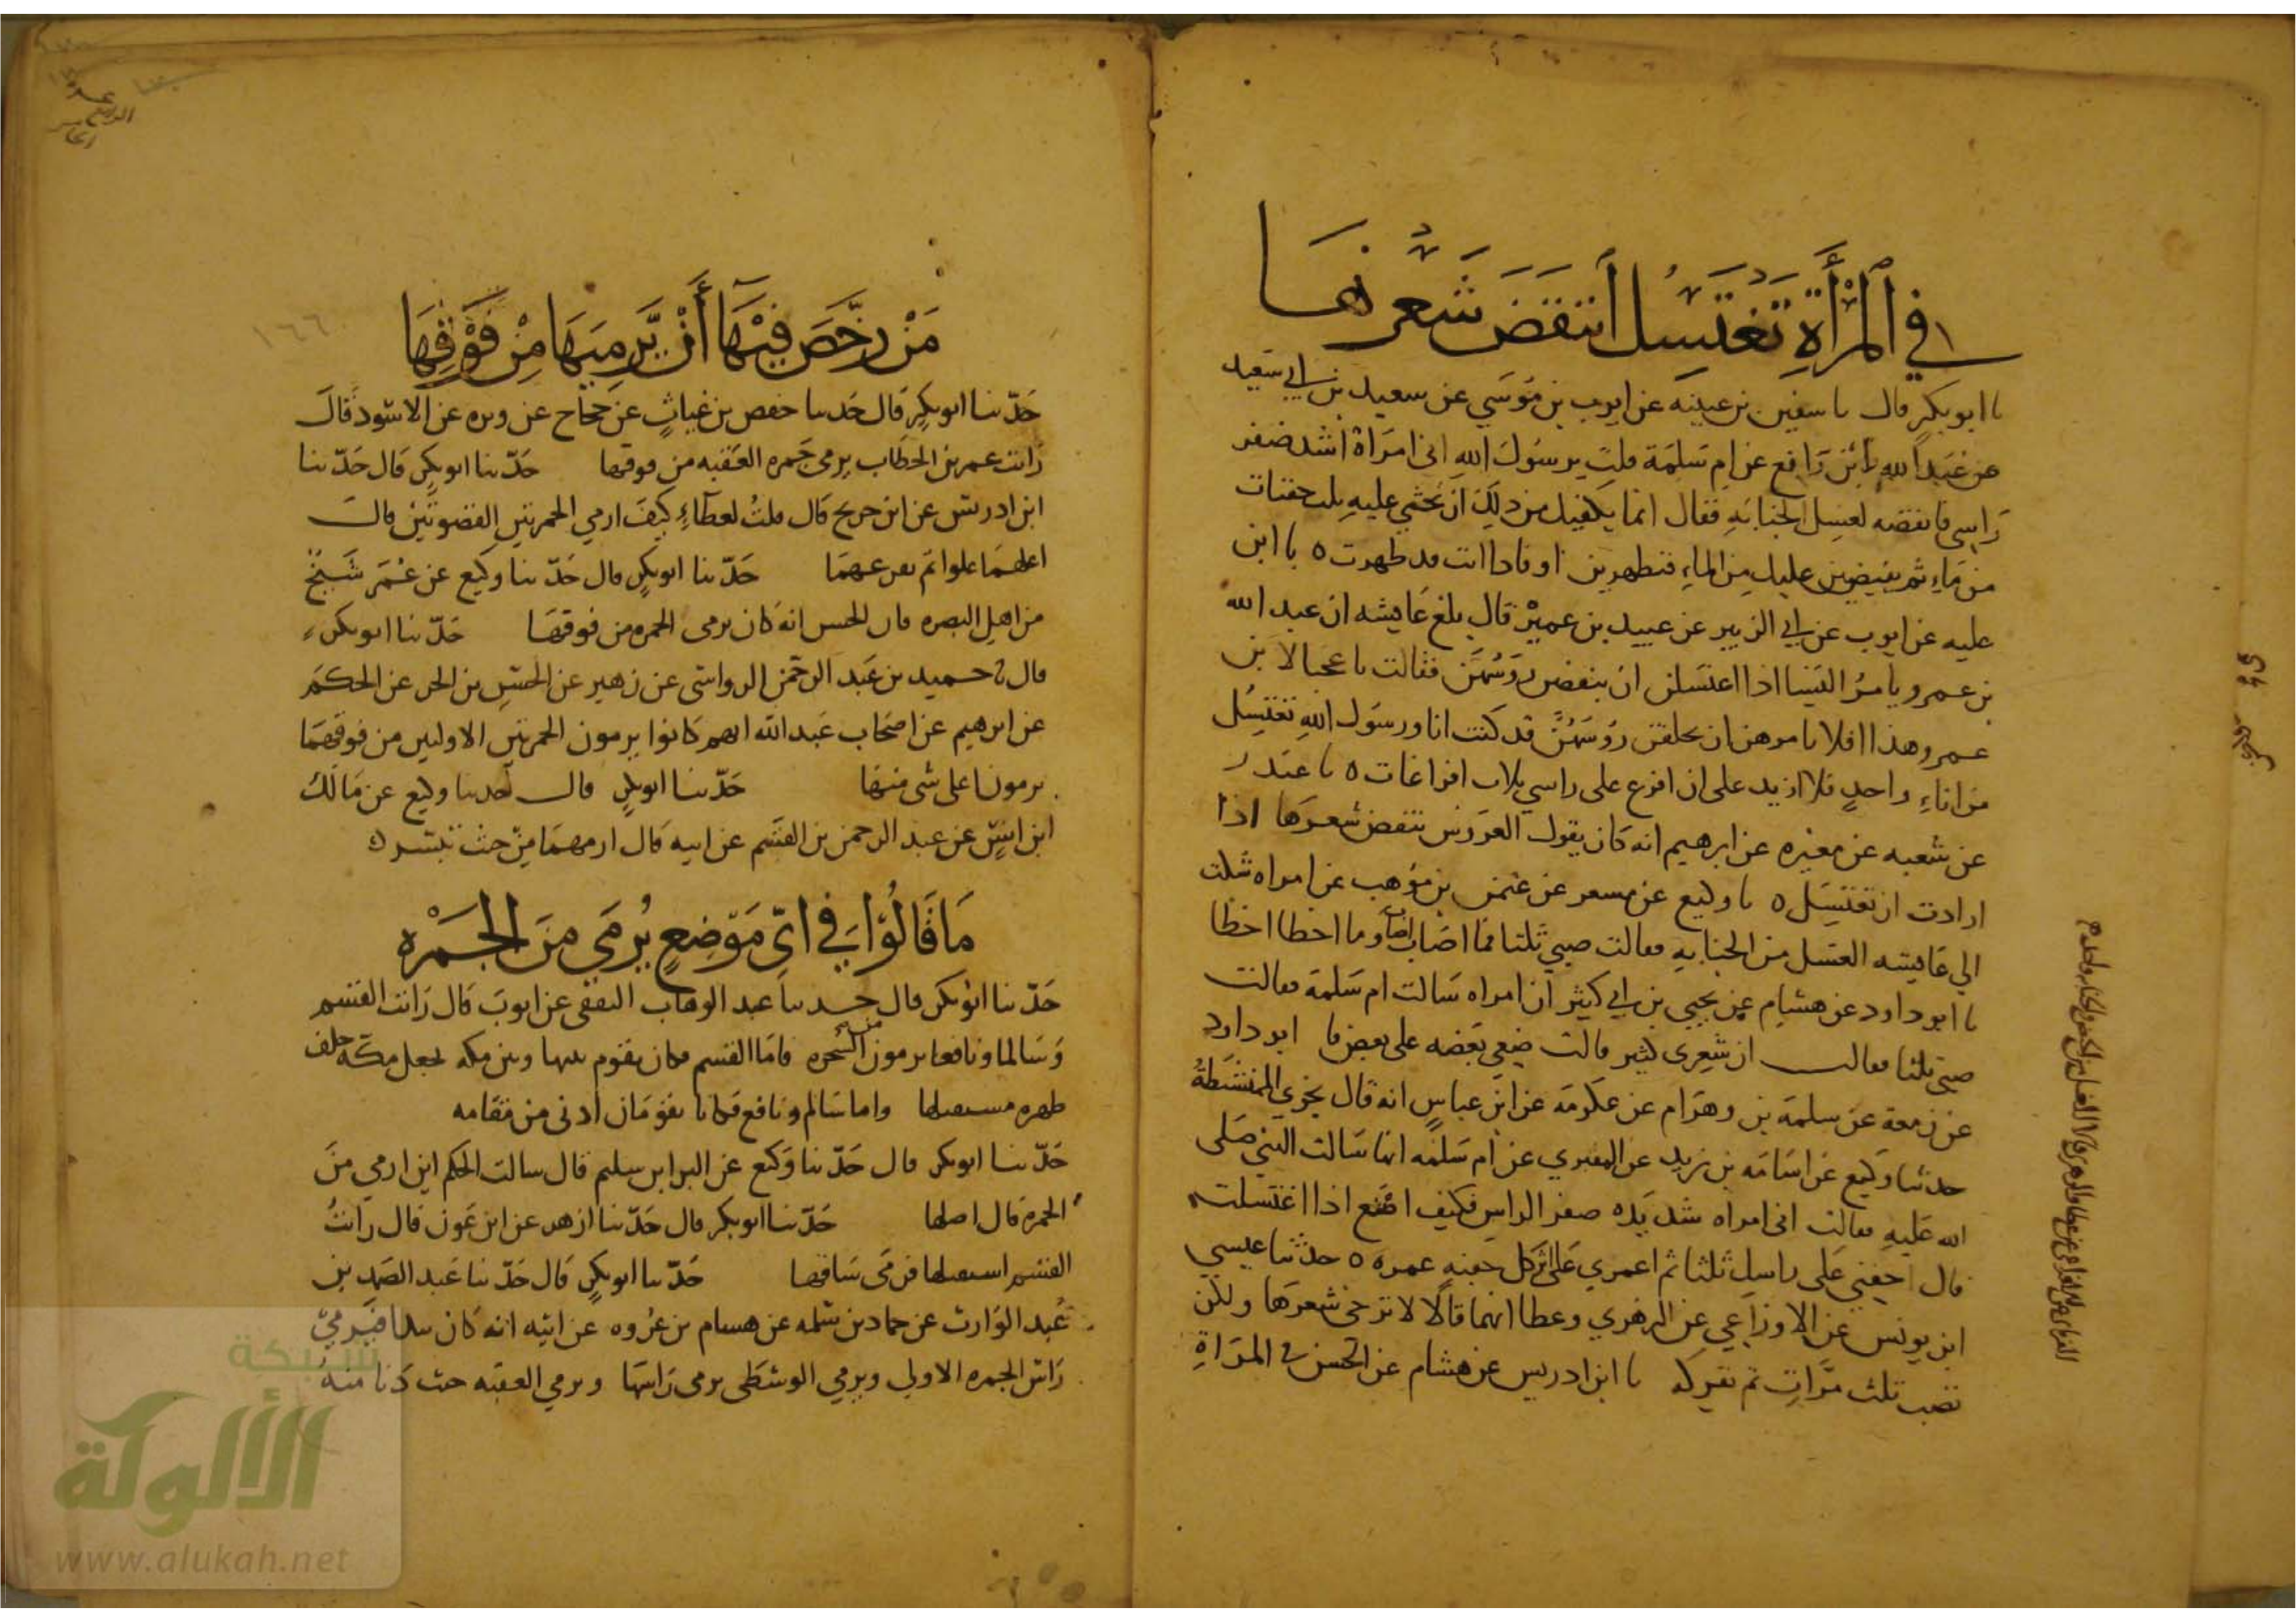 في المرأة تغتسل أتنقض شعرها
نا ابو بكر قال نا سفين بن عيينه عن ايوب بن موسي عن سعيد بن ابي سعيد
عن عبد الله بن رافع عن ام سلمة قلت يرسول الله اني امراة اشد ضفر
راسي فانقضه لغسل الجنابة فقال انما يكفيك من ذلك ان تحثي عليه ثلث حفنات
من ماء ثم تفيضين عليك من الماء فتطهرين او فاذا انت قد طهرت ٥ نا ابن
عليه عن ايوب عن ابي الزبير عن عبيد بن عمير قال بلغ عايشه ان عبد الله
بن عمرو يامر النسا اذا اغتسلن ان ينقضن روسهن فقالت يا عجبا لابن
عمرو هذا افلا يامرهن ان يحلقن روسهن قد كنت انا ورسول الله نغتسل
من اناء واحد فلا ازيد على ان افرغ على راسي ثلاث افراغات ٥ نا غندر
عن شعبه عن مغيره عن ابرهيم انه كان يقول العروس تنقض شعرها اذا
ارادت ان تغتسل ٥ نا وكيع عن مسعر عن عثمن بن موهب عن امراه شكت
الي عايشه الغسل من الجنابه فقالت صبي ثلثا فما اصاب اصاب وما اخطا اخطا
نا ابو داود عن هشام عن يحيي بن ابي كثير ان امراه سالت ام سلمة فقالت
صبي ثلثا فقالت ان شعري كثير قالت ضعي بعضه على بعض نا ابو داود
عن زمعة عن سلمة بن وهرام عن عكرمة عن ابن عباس انه قال يجزي الممتشطة
حدثنا وكيع عن اسامة بن زيد عن المقبري عن ام سلمه انها سالت النبي صلى
الله عليه فقالت اني امراه شديده صفر الراس فكيف اصنع اذا اغتسلت
قال احفني على راسك ثلثا ثم اغمري على اثر كل حفنه غمره ٥ حدثنا عيسي
ابن يونس عن الاوزاعي عن الزهري وعطا انهما قالا لا ترخي شعرها ولكن
تصب ثلث مرات ثم تفركه نا ابن ادريس عن هشام عن الحسن في المراة
من رخص فيها أن يرميها من فوقها
١٦٦
حدثنا ابو بكر قال حدثنا حفص بن غياث عن حجاج عن وبره عن الاسود قال
رايت عمر بن الخطاب يرمي جمره العقبه من فوقها حدثنا ابو بكر قال حدثنا
ابن ادريس عن ابن جريج قال قلت لعطاء كيف ارمي الجمرتين القصوتين قال
اعلهما علوا ثم تفرعهما حدثنا ابو بكر قال حدثنا وكيع عن عمر شيخ
من اهل البصره قال الحسن انه كان يرمي الجمره من فوقها حدثنا ابو بكر
قال نا حميد بن عبد الرحمن الرواسي عن زهير عن الحسن بن الحر عن الحكم
عن ابرهيم عن اصحاب عبد الله انهم كانوا يرمون الجمرتين الاوليين من فوقهما
يرمونا على شي منها حدثنا ابو بكر قال حدثنا وكيع عن مالك
ابن انس عن عبد الرحمن بن القسم عن ابيه قال ارمهما من حيث تيسر ٥
ما قالوا في اي موضع يرمى من الجمره
حدثنا ابو بكر قال حدثنا عبد الوهاب الثقفي عن ايوب قال رايت القسم
وسالما ونافعا يرمون من الشجره فاما القسم فكان يقوم بينها وبين مكه فجعل مكة خلف
ظهره مستقبلها واما سالم ونافع فكانا يقومان ادنى من مقامه
حدثنا ابو بكر قال حدثنا وكيع عن البرا بن سليم قال سالت الحكم اين ارمي من
الجمره قال اصلها حدثنا ابو بكر قال حدثنا ازهر عن ابن عون قال رايت
القسم استقبلها فرمى ساقها حدثنا ابو بكر قال حدثنا عبد الصمد بن
عبد الوارث عن حماد بن سلمه عن هشام بن عروه عن ابيه انه كان يبدا فيرمي
راس الجمره الاولى ويرمي الوسطى يرمي راسها ويرمي العقبه حيث دنا منه
شبكة
الألوكة
www.alukah.net